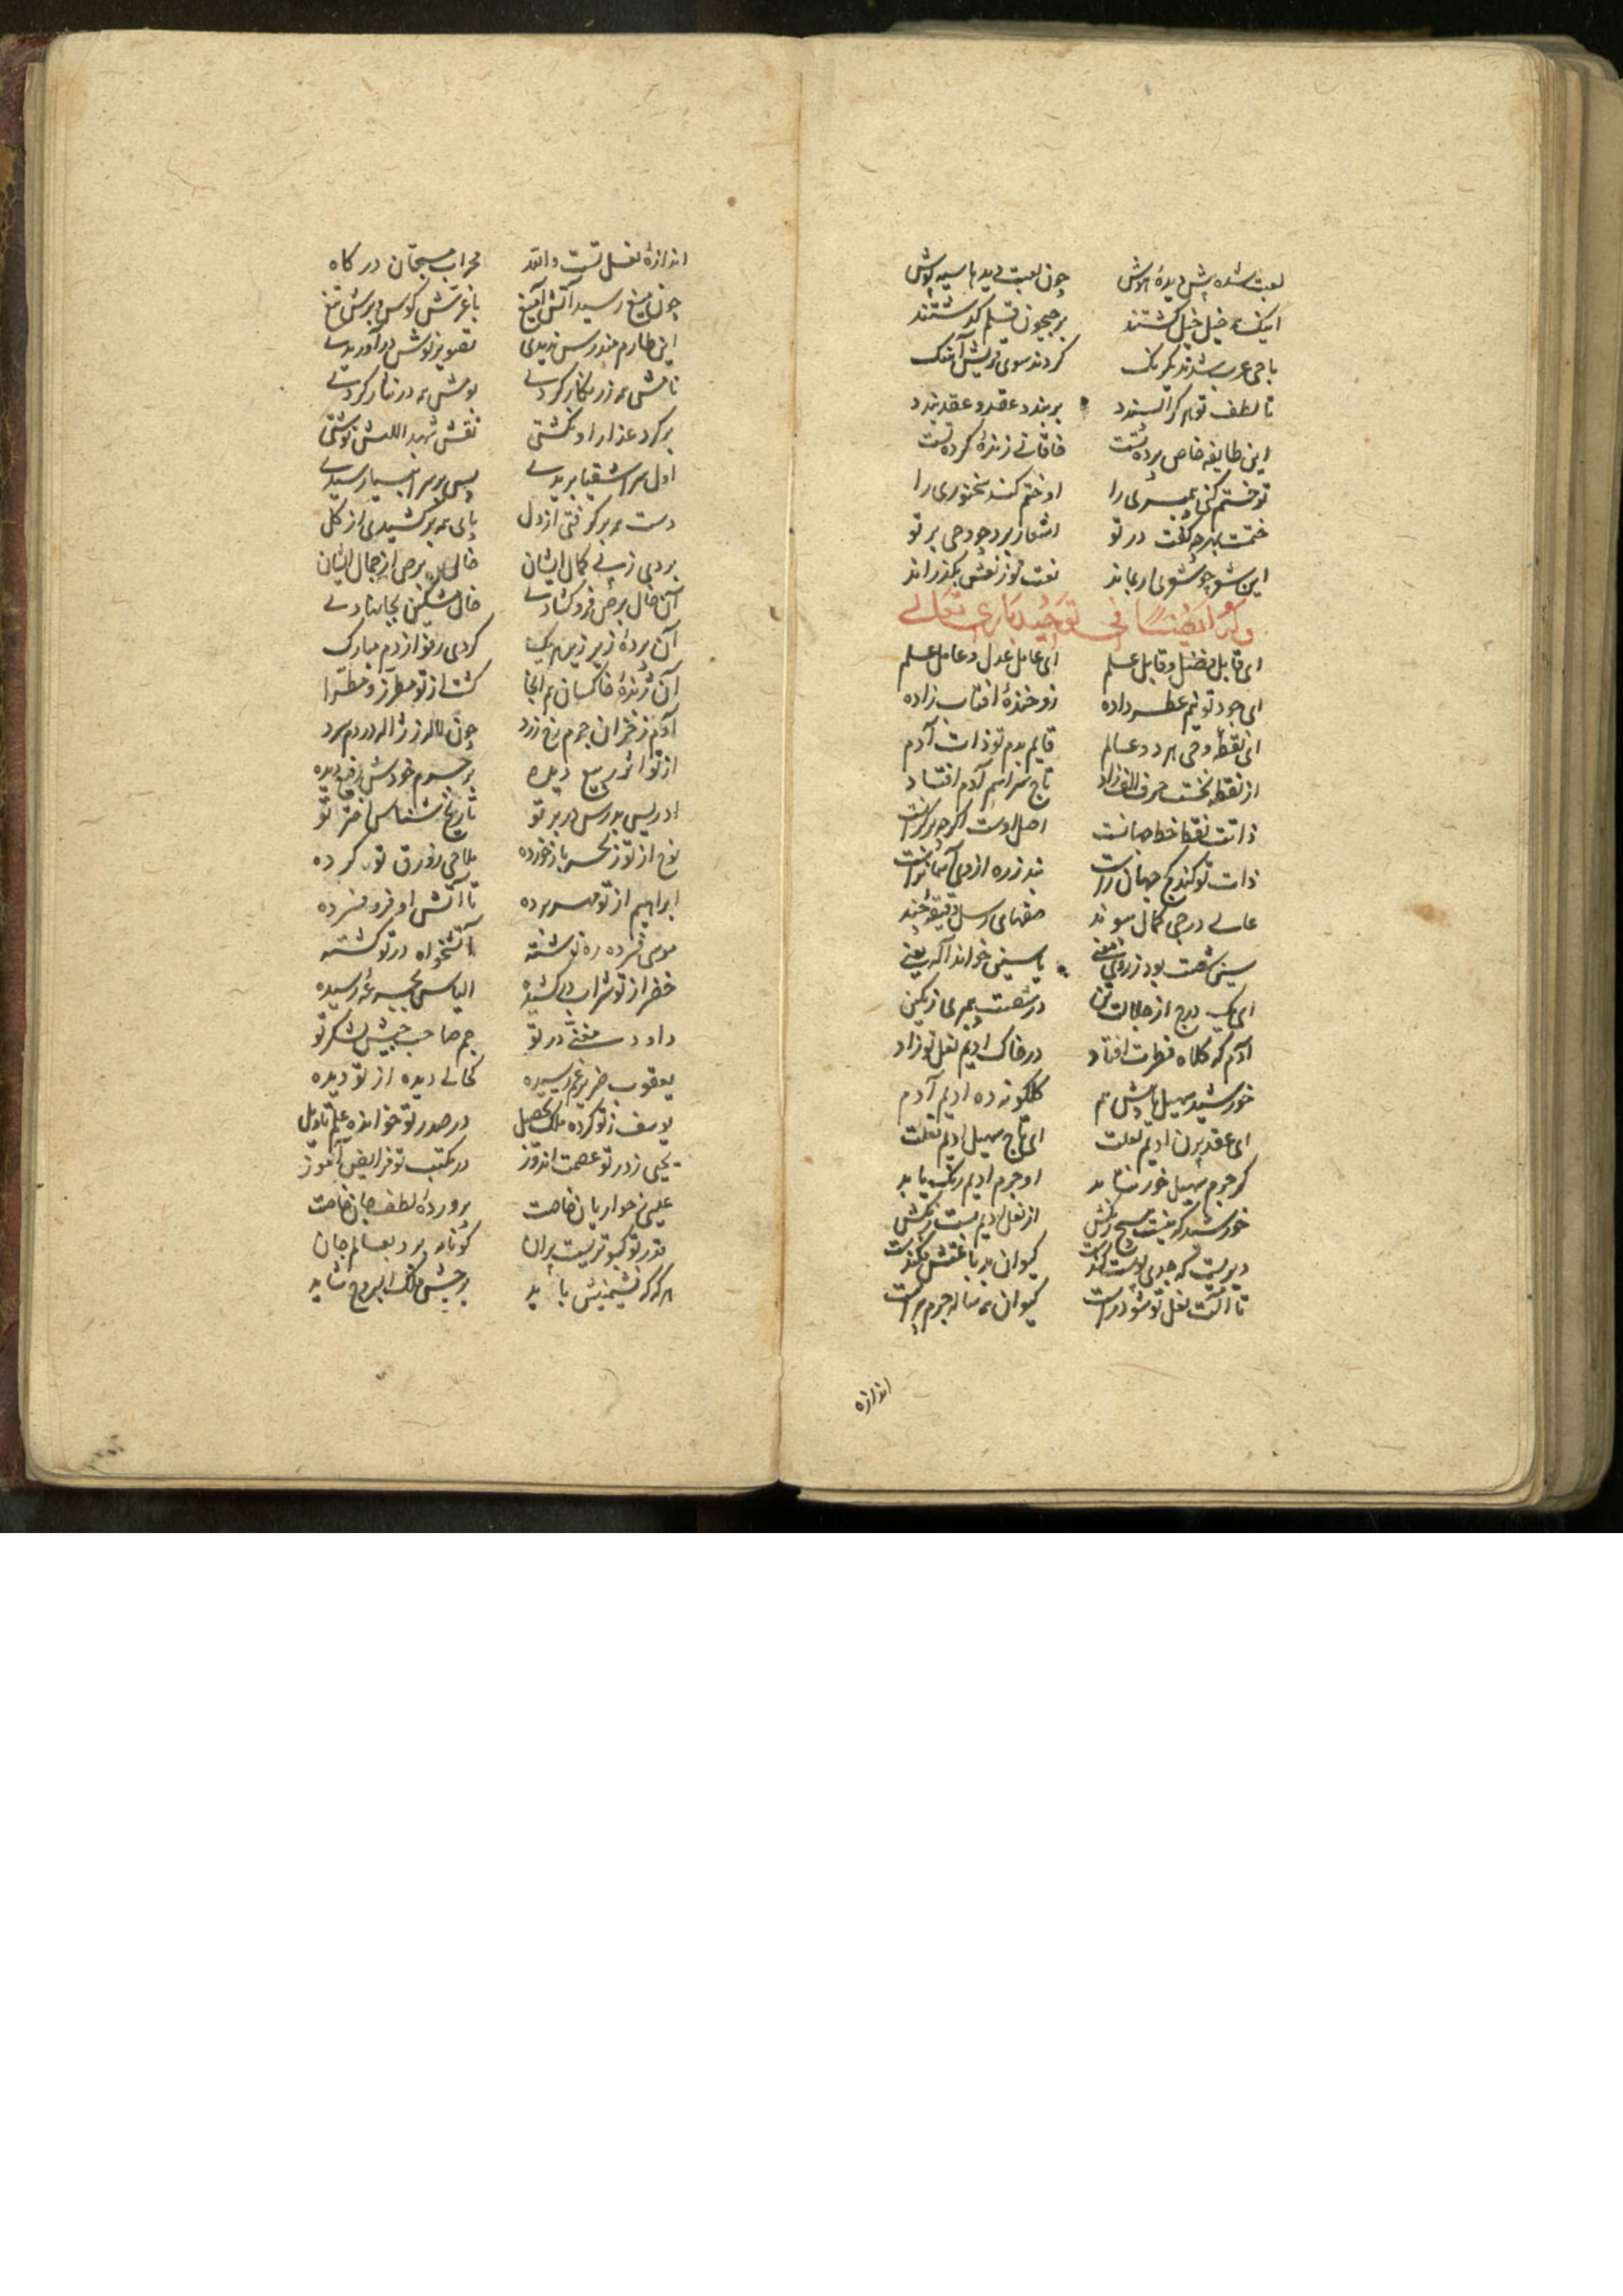 لعبت شده پیش دیدهٔ هوش چون لعبت دیدها سیه پوش
اینک همه خیل خیل گشتند بر جیحون قلم گذشتند
با حی عرب شدند یکرنگ کردند سوی قریش آهنگ
تا لطف تو هر کرا پسندد بربندد عقد و عقد بندد
این طایفه خاص بردهٔ تست خاقانی زنده کردهٔ تست
تو ختم کنی پیمبری را او ختم کند سخنوری را
ختمست بهر چه گفت در تو اشعار برو چو وحی بر تو
این شعر چو شعری ار بماند نعت تو ز نعش بگذراند
و له ایضا فی توحید باری تعالی
ای قابل فضل و قابل علم ای عامل عدل و عامل علم
ای جود تو نیم عطسه داده زو خندهٔ افتاب زاده
ای نقطه وحی هر دو عالم قایم بدم تو ذات آدم
از نقطه نخست حرف الف زاد تاج سر اسم آدم افتاد
ذاتت نقط خط جهانست اصل اوست اگرچه بر کرانست
ذات تو کند جهان راست بند زره از دی آسمانراست
عالی درجی کمال سوند صفهای رسل دقیقهٔ چند
سین شصت بود ز روی معنی یاسین خواند آله یعنی
ای یک درج از جلالت در شصت پیمبری ز تمکین
آدم که کلاه فطرت افتاد در خاک ادیم نعل تو زاد
خورشید سهیل پاش هم گلگونه ده ادیم آدم
ای عقد پرن ادیم نعلت ای تاج سهیل ادیم نعلت
گر جرم سهیل خور نتابد او جرم ادیم رنگ یابد
خورشید که نیست هیچ رنگش از نعل ادیم بست رنگش
دیریست که جدی پوست کندست کیوان بدباغتش فکندست
تا آلت نعل تو شود راست کیوان همه ساله جرم پیراست
اندازه
اندازهٔ نعل تست والله محراب مسبحان درگاه
چون میغ رسید آتش آمیغ با غرش کوس و برش تیغ
این طارم هندوس ندیدی تصویر نوش در آوریدی
نامش همه زر نگار کردی بومش همه در نثار کردی
بر گرد عذار او نگشتی نقش شهد اللهش نوشتی
اول سر اشقیا بریدی پس بر سر انبیا رسیدی
دست همه برگرفتی از دل پای همه برکشیدی از گل
بردی ز پی کمال ایشان خال برص از جمال ایشان
آن خال برص فرو گشادی خال مشکین بجا نهادی
آن بردهٔ زیر زمین یک کردی رفو از دم مبارک
آن ژندهٔ خاکسان هم آنجا گشت از تو مطرز و مطرا
آدم ز خزان جرم رخ زرد چون لاله ز ژاله در دم سرد
از تو اثر ربیع دیده بر جرم خودش شفیع دیده
ادریس مدرس در بر تو تاریخ شناس اختر تو
نوح از تو ز بحر باز خورده ملاحی زورق تو کرده
ابراهیم از تو مهر برده تا آتش او فرو فسرده
موسی فسرده ره نوشته آتشخواه در تو گشته
خضر از تو شراب در کشیده الیاس بجرعهٔ رسیده
داود مغنی در تو جم صاحب جیش لشکر تو
یعقوب ضریر غم رسیده کحالی دیده از تو دیده
یوسف ز تو کرده ملک تحصیل در صدر تو خوانده علم تاویل
یحیی ز در تو عصمت اندوز در مکتب تو فرایض آموز
عیسی ز حواریان خاصت پروردهٔ لطف جان خاصت
قدر تو کبوتریست پران کو نامه برد بعالم جان
هر که که نشیمنیش باید برجیش فلک البروج شاید